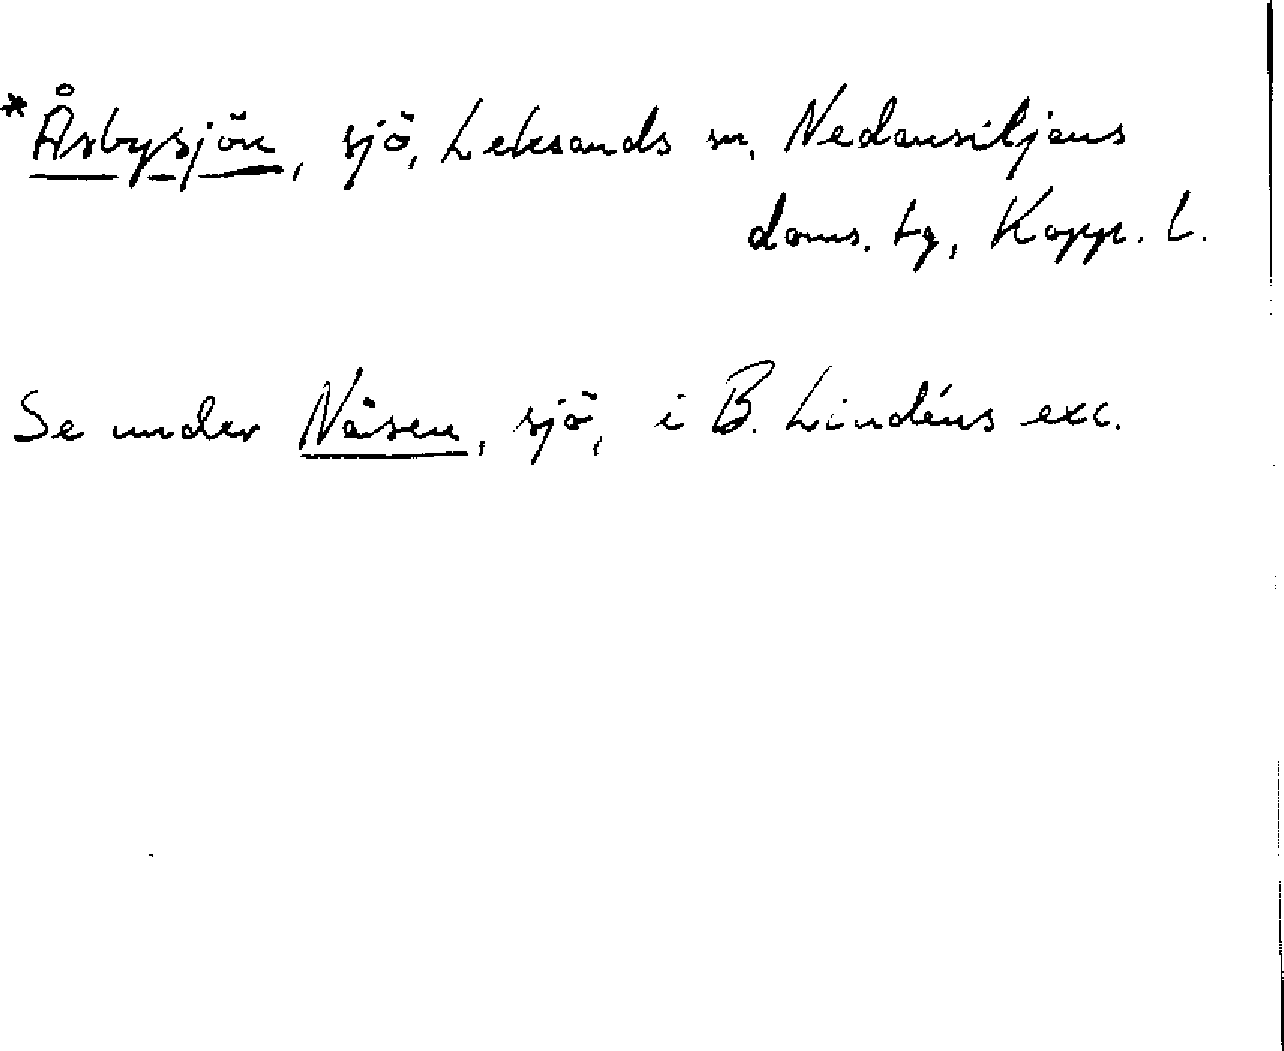 *Åsbysjön, sjö, Leksands sn, Nedansiljans
doms. tg, Kopp. l.
Se under Nåsen, sjö, i B. Lindéns exc.